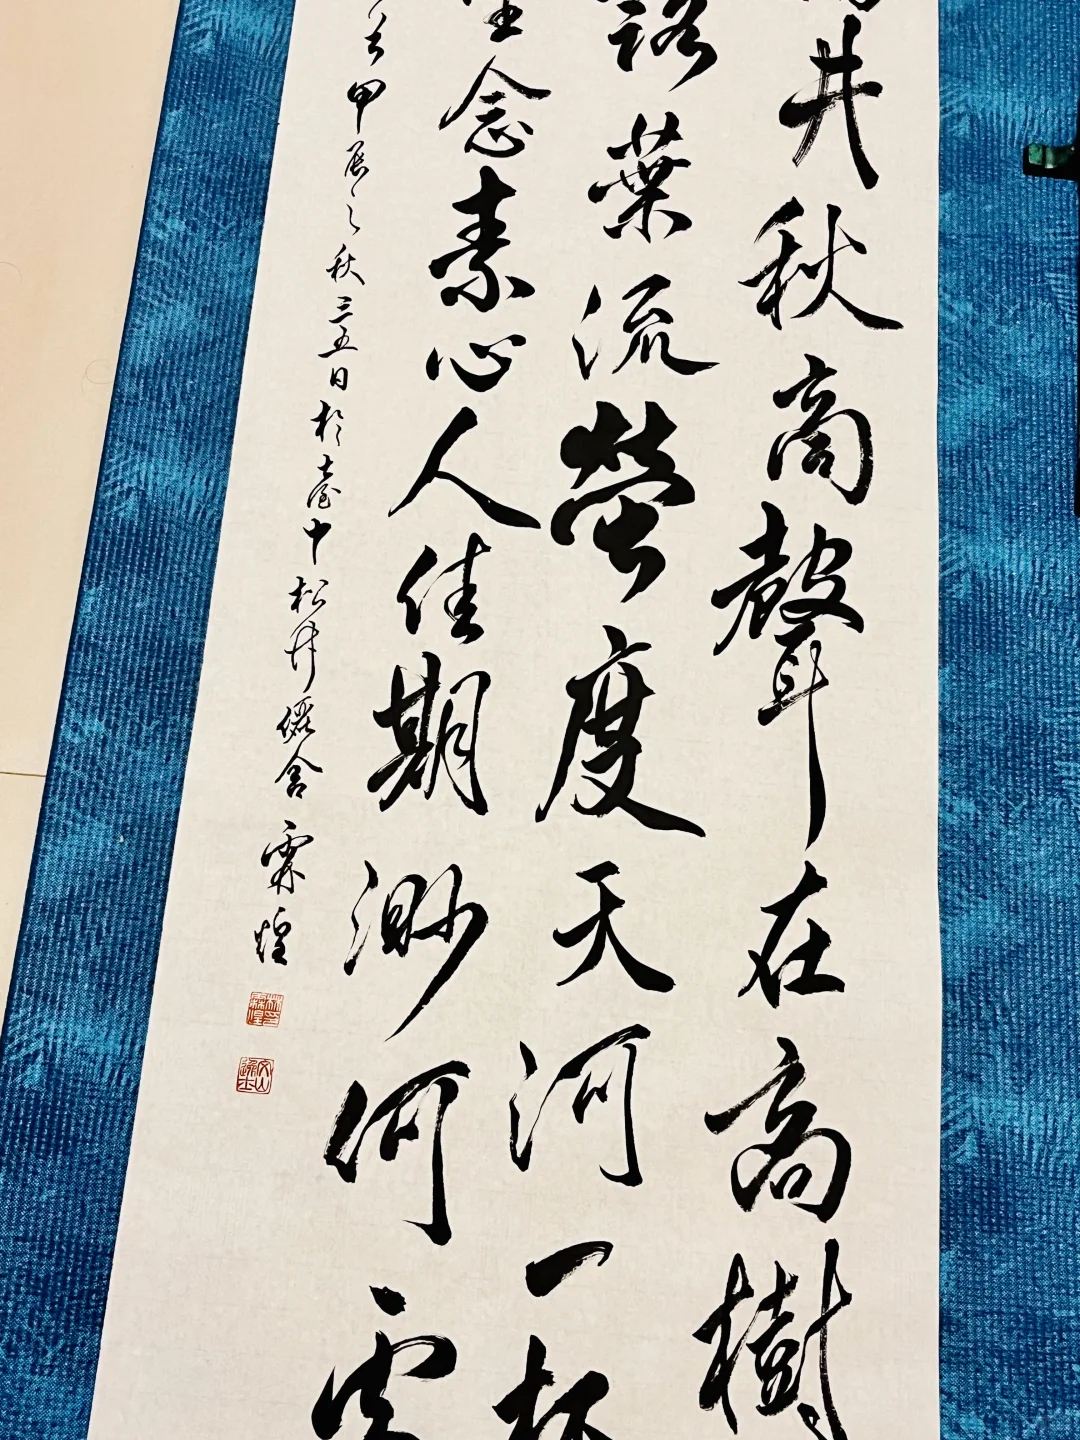 井秋高聲在高樹
露葉流螢度天河一杯
念素心人佳期渺何處
甲辰之秋三五日於臺中松竹儷舍霖煌